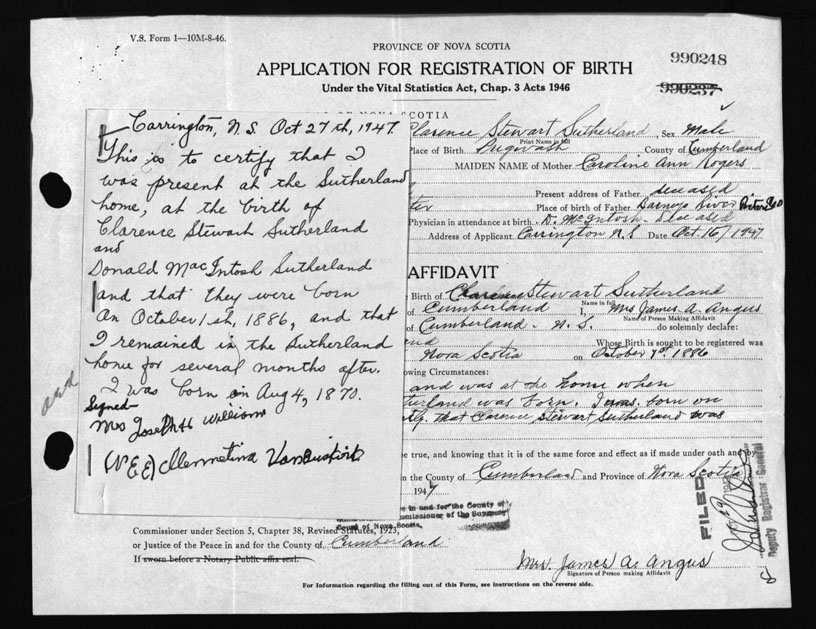 V.S. Form 1—10M-8-46.
PROVINCE OF NOVA SCOTIA
990248
APPLICATION FOR REGISTRATION OF BIRTH
990237
Under the Vital Statistics Act, Chap. 3 Acts 1946
Carrington, N.S. Oct 27th, 1947
This is to certify that I
was present at the Sutherland
home, at the birth of
Clarence Stewart Sutherland
and
Donald MacIntosh Sutherland
and that they were born
on October 1st, 1886, and that
I remained in the Sutherland
home for several months after.
I was born on Aug 4, 1870.
Signed
Mrs Joseph H William
(NEE)
and
NOVA SCOTIA
Clarence Stewart Sutherland Sex Male
Print Name in full
Place of Birth Pugwash County of Cumberland
MAIDEN NAME of Mother Caroline Ann Rogers
Present address of Father deceased
Place of birth of Father Barneys River Pictou
Physician in attendance at birth D. McIntosh deceased
Address of Applicant Carrington N.S. Date Oct. 16/1947
AFFIDAVIT
Birth of Clarence Stewart Sutherland
Name in full
of Cumberland I, Mrs James A. Angus
Name of Person Making Affidavit
of Cumberland N.S. do solemnly declare:
Whose Birth is sought to be registered was
Nova Scotia on October 1st 1886
owing Circumstances:
and was at the home when
therland was born. I was born on
that Clarence Stewart Sutherland was
be true, and knowing that it is of the same force and effect as if made under oath and by
n the County of Cumberland and Province of Nova Scotia
1947
in and for the County of
mmissioner of the Supreme
Court of Nova Scotia,
Commissioner under Section 5, Chapter 38, Revised Statutes, 1923,
or Justice of the Peace in and for the County of Cumberland
If sworn before a Notary Public affix seal.
Mrs. James A. Angus
Signature of Person making Affidavit
For Information regarding the filling out of this Form, see instructions on the reverse side.
FILED
Deputy Registrar General
8